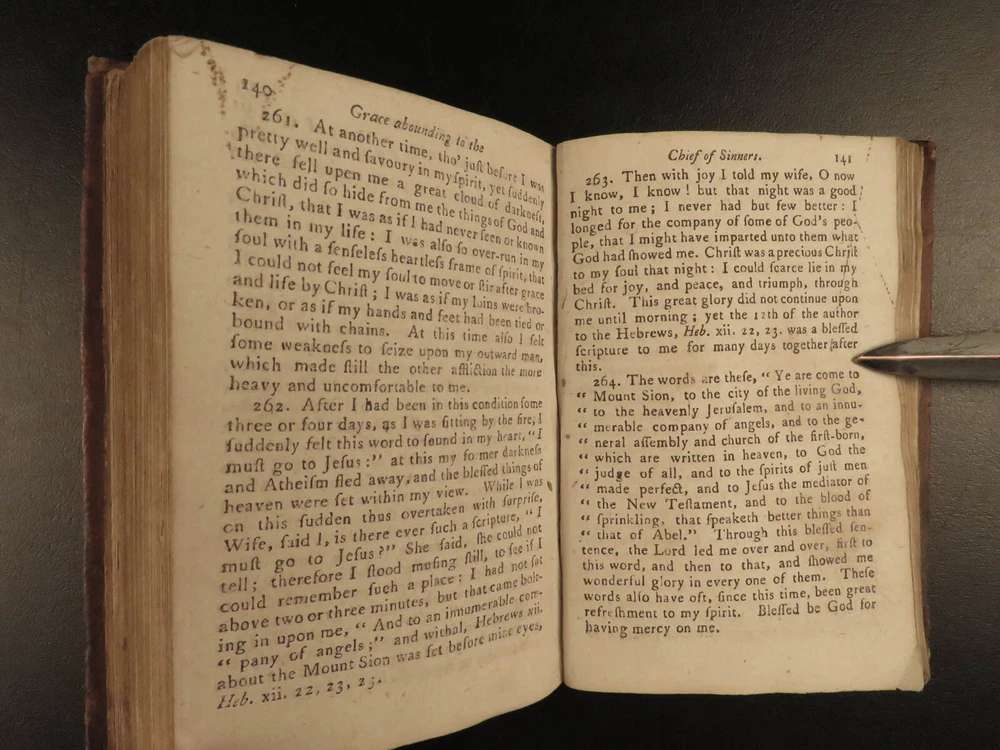 140
Grace abounding to the
261. At another time, tho' juſt before I was
pretty well and ſavoury in my ſpirit, yet ſuddenly
there fell upon me a great cloud of darkneſs,
which did ſo hide from me the things of God and
Chriſt, that I was as if I had never ſeen or known
them in my life: I was alſo ſo over-run in my
ſoul with a ſenſeleſs heartleſs frame of ſpirit, that
I could not feel my ſoul to move or ſtir after grace
and life by Chriſt; I was as if my loins were bro-
ken, or as if my hands and feet had been tied or
bound with chains. At this time alſo I felt
ſome weakneſs to ſeize upon my outward man,
which made ſtill the other affliction the more
heavy and uncomfortable to me.
262. After I had been in this condition ſome
three or four days, as I was ſitting by the fire, I
ſuddenly felt this word to ſound in my heart, "I
muſt go to Jeſus:" at this my former darkneſs
and Atheiſm fled away, and the bleſſed things of
heaven were ſet within my view. While I was
on this ſudden thus overtaken with ſurpriſe,
Wife, ſaid I, is there ever ſuch a ſcripture, "I
muſt go to Jeſus?" She ſaid, ſhe could not
tell; therefore I ſtood muſing ſtill, to ſee if I
could remember ſuch a place: I had not ſat
above two or three minutes, but that came bolt-
ing in upon me, "And to an innumerable com-
"pany of angels;" and withal, Hebrews xii.
about the Mount Sion was ſet before mine eyes,
Heb. xii. 22, 23, 23.
Chief of Sinners.
141
263. Then with joy I told my wife, O now
I know, I know! but that night was a good
night to me; I never had but few better: I
longed for the company of ſome of God's peo-
ple, that I might have imparted unto them what
God had ſhowed me. Chriſt was a precious Chriſt
to my ſoul that night: I could ſcarce lie in my
bed for joy, and peace, and triumph, through
Chriſt. This great glory did not continue upon
me until morning; yet the 12th of the author
to the Hebrews, Heb. xii. 22, 23. was a bleſſed
ſcripture to me for many days together after
this.
264. The words are theſe, "Ye are come to
"Mount Sion, to the city of the living God,
"to the heavenly Jeruſalem, and to an innu-
"merable company of angels, and to the ge-
"neral aſſembly and church of the firſt-born,
"which are written in heaven, to God the
"judge of all, and to the ſpirits of juſt men
"made perfect, and to Jeſus the mediator of
"the New Teſtament, and to the blood of
"ſprinkling, that ſpeaketh better things than
"that of Abel." Through this bleſſed ſen-
tence, the Lord led me over and over, firſt to
this word, and then to that, and ſhowed me
wonderful glory in every one of them. Theſe
words alſo have oft, ſince this time, been great
refreſhment to my ſpirit. Bleſſed be God for
having mercy on me.